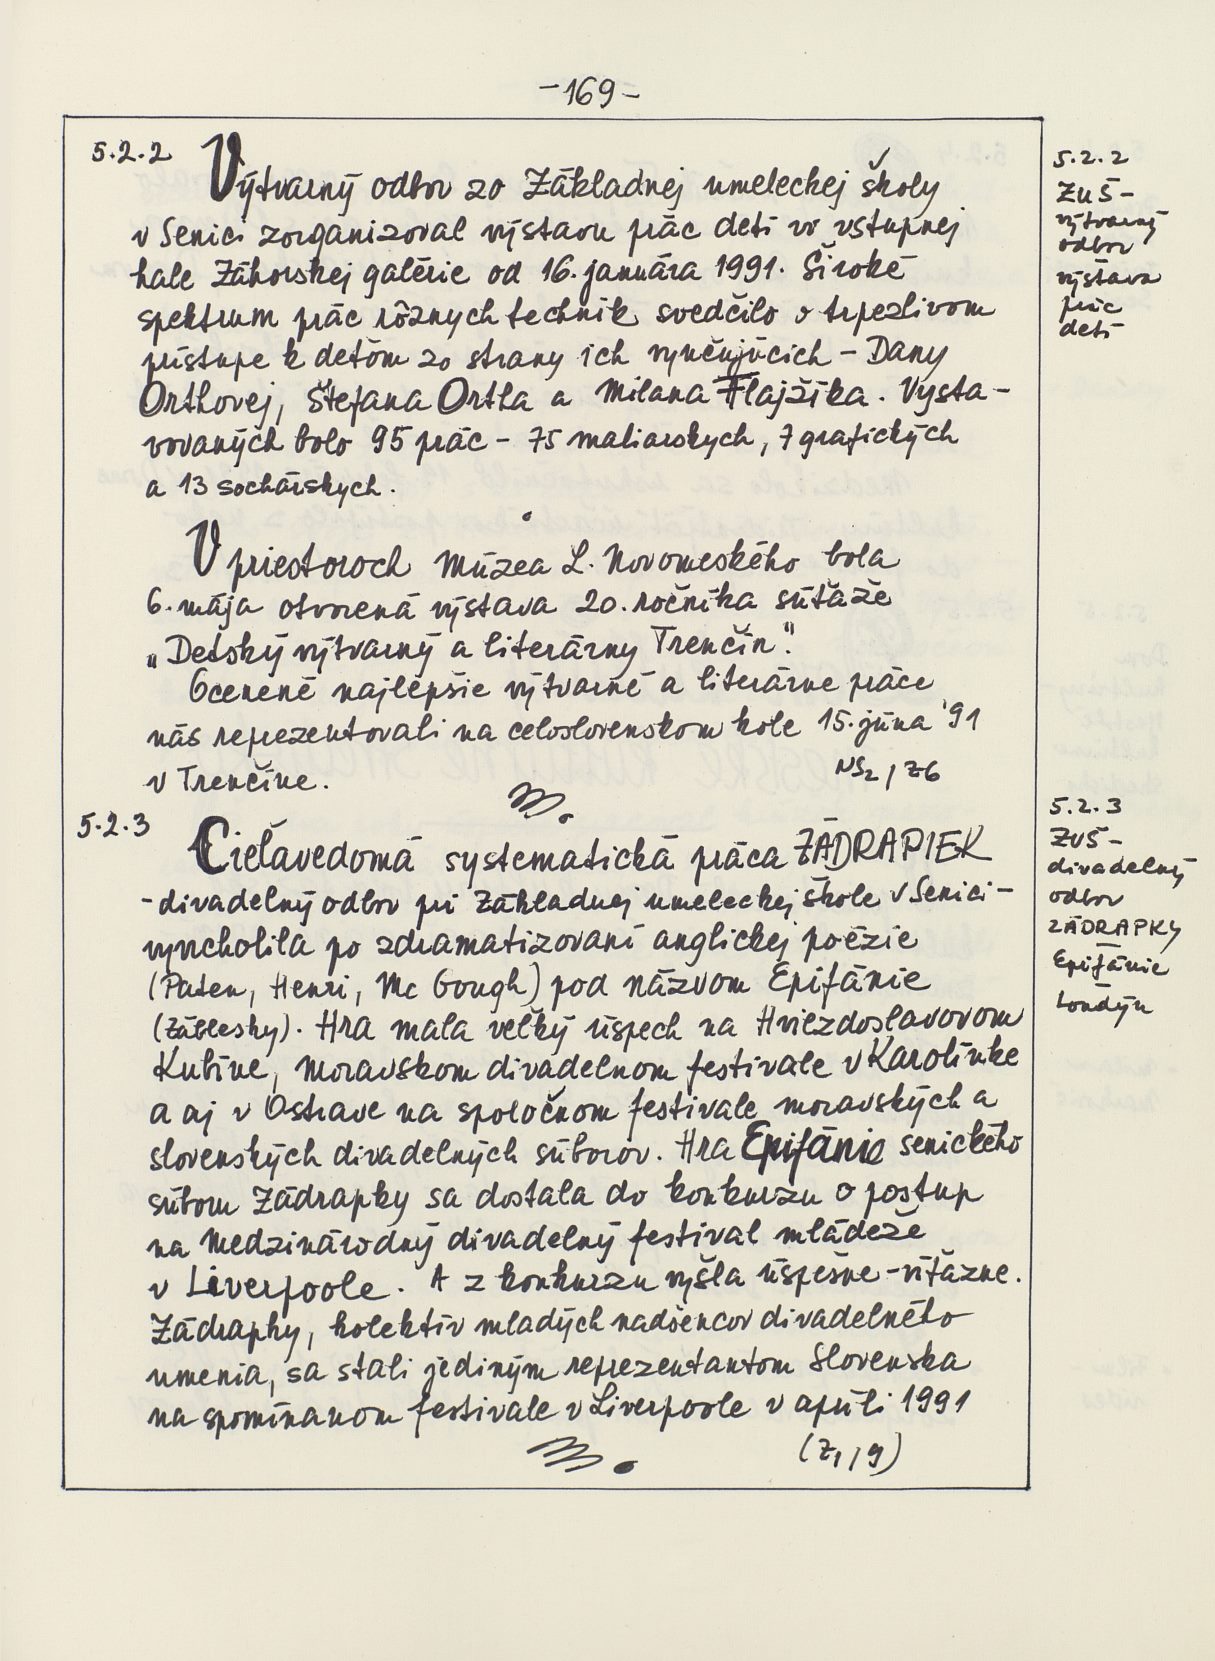 -169-
5.2.2 Výtvarný odbor zo Základnej umeleckej školy
v Senici zorganizoval výstavu prác detí vo vstupnej
hale Záhorskej galérie od 16. januára 1991. Široké
spektrum prác rôznych techník svedčilo o trpezlivom
prístupe k deťom zo strany ich vyučujúcich - Dany
Orthovej, Štefana Ortha a Milana Flajžíka. Vysta-
vovaných bolo 95 prác - 75 maliarskych, 7 grafických
a 13 sochárskych.
V priestoroch Múzea L. Novomeského bola
6. mája otvorená výstava 20. ročníka súťaže
„Detský výtvarný a literárny Trenčín".
Ocenené najlepšie výtvarné a literárne práce
nás reprezentovali na celoslovenskom kole 15. júna '91
v Trenčíne.
NS2/Z6
5.2.3 Cieľavedomá systematická práca ZÁDRAPIEK
- divadelný odbor pri Základnej umeleckej škole v Senici -
vyvrcholila po zdramatizovaní anglickej poézie
(Paten, Henri, Mc Gough) pod názvom Epifánie
(Záblesky). Hra mala veľký úspech na Hviezdoslavovom
Kubíne, Moravskom divadelnom festivale v Karolínke
a aj v Ostrave na spoločnom festivale moravských a
slovenských divadelných súborov. Hra Epifánie senického
súboru Zádrapky sa dostala do konkurzu o postup
na Medzinárodný divadelný festival mládeže
v Liverpoole. A z konkurzu vyšla úspešne - víťazne.
Zádrapky, kolektív mladých nadšencov divadelného
umenia, sa stali jediným reprezentantom Slovenska
na spomínanom festivale v Liverpoole v apríli 1991
(Z1/9)
5.2.2
ZUŠ-
výtvarný
odbor
výstava
prác
detí
5.2.3
ZUŠ-
divadelný
odbor
ZÁDRAPKY
Epifánie
Londýn